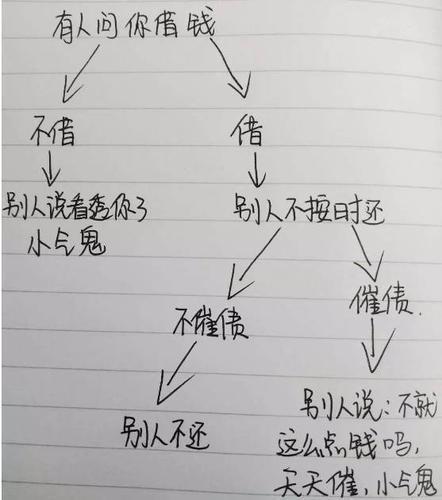 有人问你借钱
不借
借
别人说看透你了
小气鬼
别人不按时还
不催债
催债.
别人不还
别人说:不就
这么点钱吗,
天天催,小气鬼